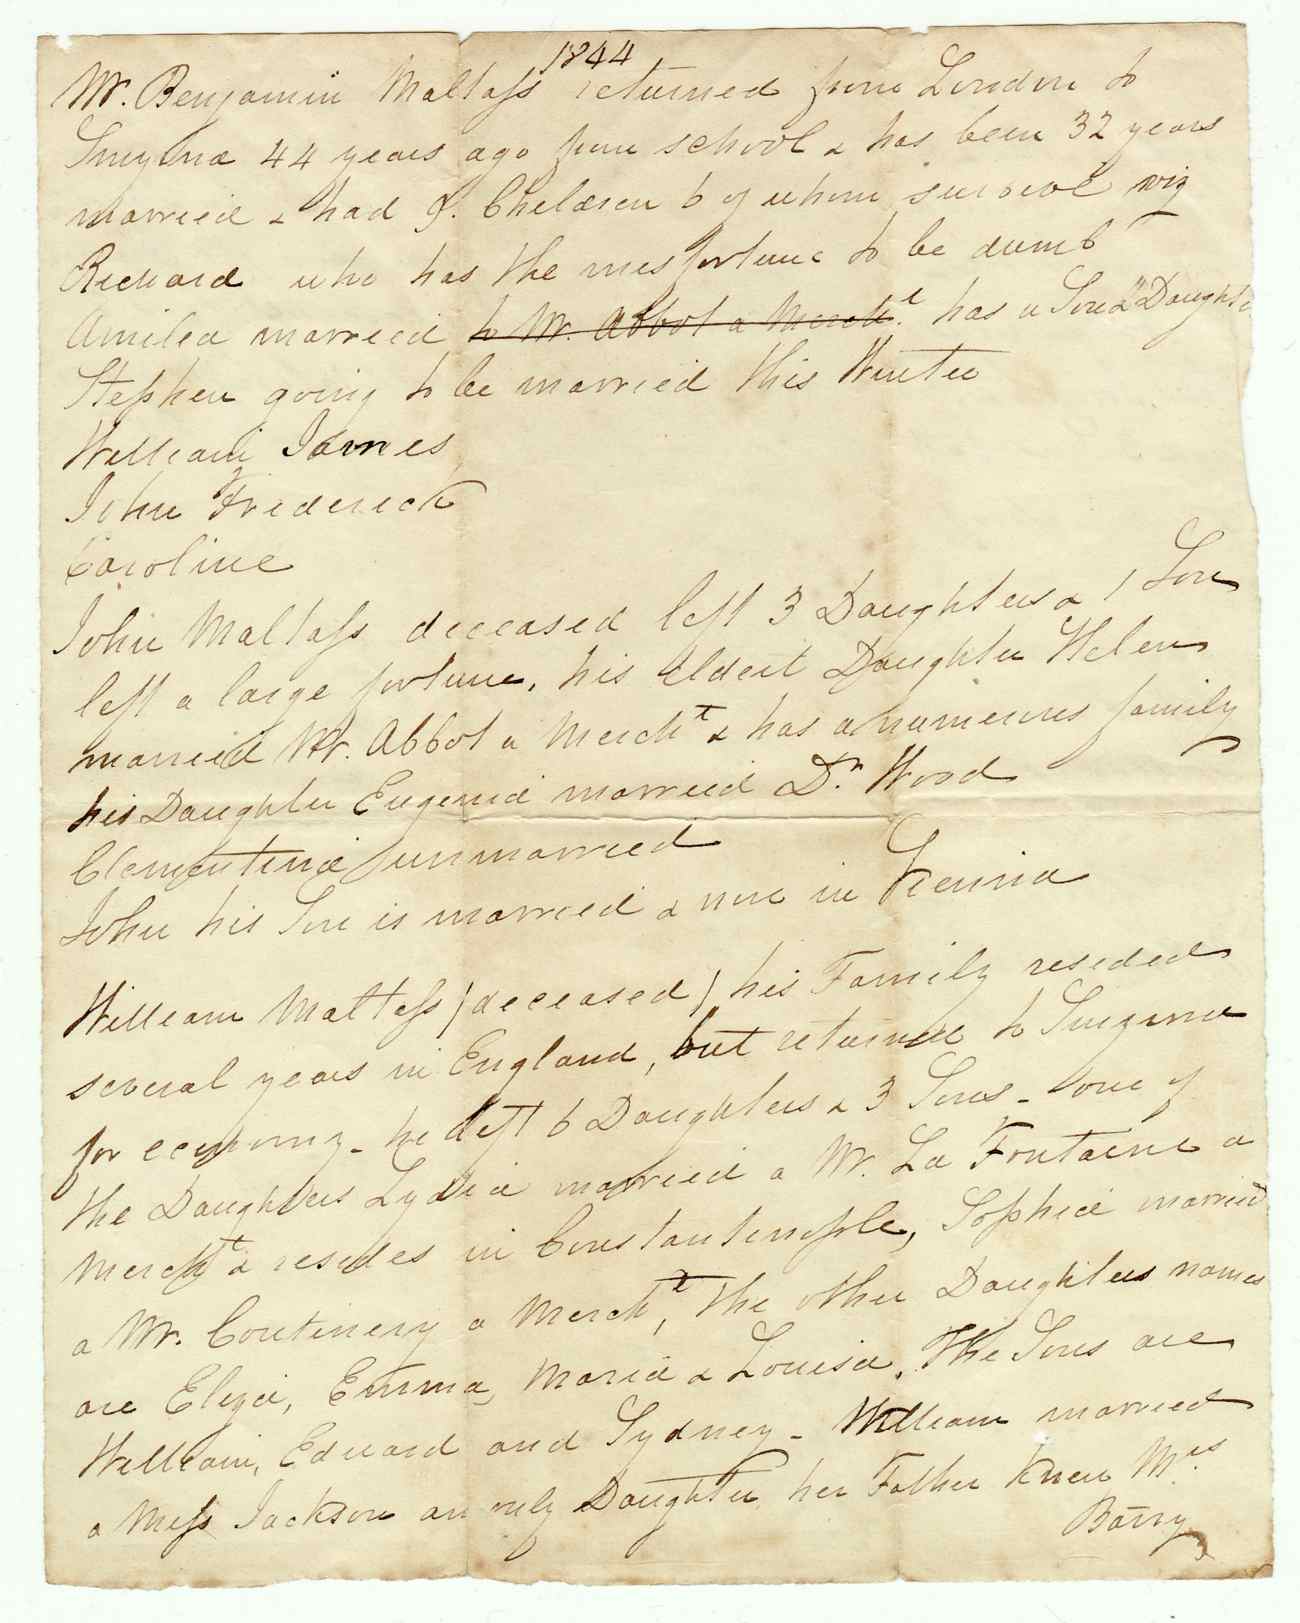 1844
Mr. Benjamin Maltass returned from London to
Smyrna 44 years ago from school & has been 32 years
married & had 9. Children 6 of whom survive viz
Richard who has the misfortune to be dumb
Amilea married to Mr. Abbot a Mercht. has a Son & Daughter
Stephen going to be married this Winter
William James
John Frederick
Caroline
John Maltass deceased left 3 Daughters & 1 Son
left a large fortune, his eldest Daughter Helen
married Mr. Abbot a Mercht & has a numerous family
his Daughter Eugenia married Dr. Wood
Clementina unmarried
John his Son is married & now in Vienna
William Maltass (deceased) his Family resided
several years in England, but returned to Smyrna
for economy - he left 6 Daughters & 3 Sons - one of
the Daughters Lydia married a Mr. La Fontaine a
Mercht & resides in Constantinople, Sophia married
a Mr. a Mercht, the other Daughters names
are Eliza, Emma, Maria & Louisa. The Sons are
William, Edward and Sydney - William married
a Miss Jackson an only Daughter her Father knew Mrs
Barry